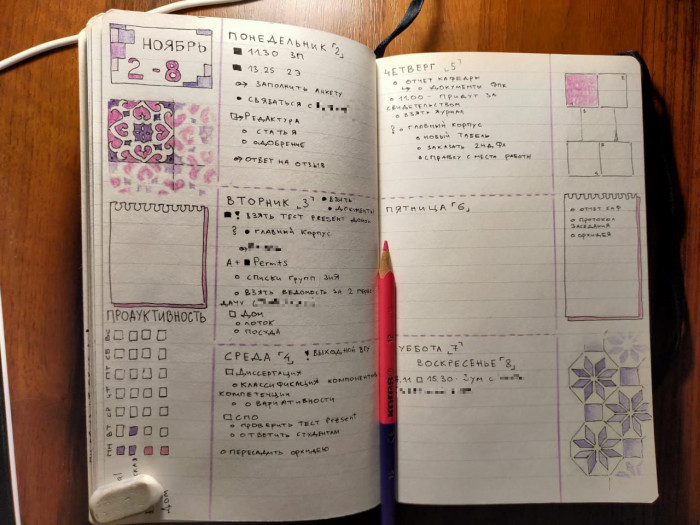 НОЯБРЬ
2-8
ПОНЕДЕЛЬНИК 「2」
11.30 ЗП
13.25 2Э
ЗАПОЛНИТЬ АНКЕТУ
СВЯЗАТЬСЯ С
РЕДАКТУРА
СТАТЬЯ
ОДОБРЕНИЕ
ОТВЕТ НА ОТЗЫВ
ВТОРНИК 「3」 ВЗЯТЬ
ДОКУМЕНТЫ
! ВЗЯТЬ ТЕСТ PRESENT
ГЛАВНЫЙ КОРПУС
A + Permts
СПИСКИ ГРУПП ЗИЯ
ВЗЯТЬ ВЕДОМОСТЬ ЗА 2
ДАЧУ (
ДОМ
ЛОТОК
ПОСУДА
СРЕДА 「4」 ! ВЫХОДНОЙ ВГУ
ДИССЕРТАЦИЯ
КЛАССИФИКАЦИЯ КОМПОНЕНТОВ
КОМПЕТЕНЦИИ
О ВАРИАТИВНОСТИ
СПО
ПРОВЕРИТЬ ТЕСТ Present
ОТВЕТИТЬ СТУДЕНТАМ
ПЕРЕСАДИТЬ ОРХИДЕЮ
ПРОДУКТИВНОСТЬ
ВС
СБ
ПТ
ЧТ
СР
ВТ
ПН
ДОМ
ЧЕТВЕРГ 「5」
ОТЧЕТ КАФЕДРЫ
ДОКУМЕНТЫ ФПК
11.00 - ПРИДУТ ЗА
СВИДЕТЕЛЬСТВОМ
ВЗЯТЬ ЖУРНАЛ
ГЛАВНЫЙ КОРПУС
НОВЫЙ ТАБЕЛЬ
ЗАКАЗАТЬ 2НДФЛ
СПРАВКУ С МЕСТА РАБОТЫ
ПЯТНИЦА 「6」
ОТЧЕТ
ПРОТОКОЛ
ЗАСЕДАНИЯ
ОРХИДЕЯ
СУББОТА 「7」
ВОСКРЕСЕНЬЕ 「8」
15.30 - ЗУМ С